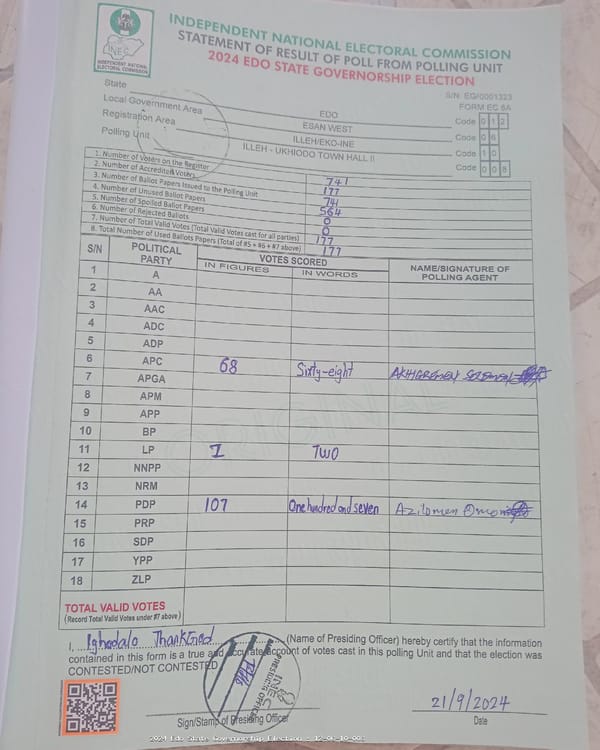 INEC
INDEPENDENT NATIONAL
ELECTORAL COMMISSION
INDEPENDENT NATIONAL ELECTORAL COMMISSION
STATEMENT OF RESULT OF POLL FROM POLLING UNIT
2024 EDO STATE GOVERNORSHIP ELECTION
S/N: EG/0001323
FORM EC 8A
State EDO Code 0 1 2
Local Government Area ESAN WEST Code 0 6
Registration Area ILLEH/EKO-INE Code 1 0
Polling Unit ILLEH - UKHIODO TOWN HALL II Code 0 0 8
1. Number of Voters on the Register 741
2. Number of Accredited Voters 177
3. Number of Ballot Papers Issued to the Polling Unit 741
4. Number of Unused Ballot Papers 564
5. Number of Spoiled Ballot Papers 0
6. Number of Rejected Ballots 0
7. Number of Total Valid Votes (Total Valid Votes cast for all parties) 177
8. Total Number of Used Ballots Papers (Total of #5 + #6 + #7 above) 177
S/N POLITICAL PARTY VOTES SCORED NAME/SIGNATURE OF POLLING AGENT
IN FIGURES IN WORDS
1 A
2 AA
3 AAC
4 ADC
5 ADP
6 APC 68 Sixty-eight
7 APGA
8 APM
9 APP
10 BP
11 LP TWO
12 NNPP
13 NRM
14 PDP 107 One hundred and seven Azilomen
15 PRP
16 SDP
17 YPP
18 ZLP
TOTAL VALID VOTES
(Record Total Valid Votes under #7 above)
I, Ighodalo ThankGod (Name of Presiding Officer) hereby certify that the information
contained in this form is a true and accurate account of votes cast in this polling Unit and that the election was
CONTESTED/NOT CONTESTED
INEC
PRESIDING OFFICER
21/9/2024
Sign/Stamp of Presiding Officer Date
2024 Edo State Governorship Election - 12-06-10-008